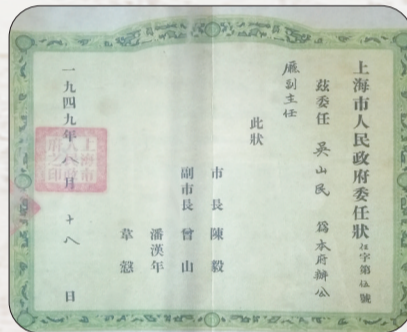 上海市人民政府委任狀 任字第伍號
茲委任 吳山民 爲本府辦公
廳副主任
此狀
市長 陳毅
副市長 曾山
潘漢年
韋慤
一九四九年八月十八日